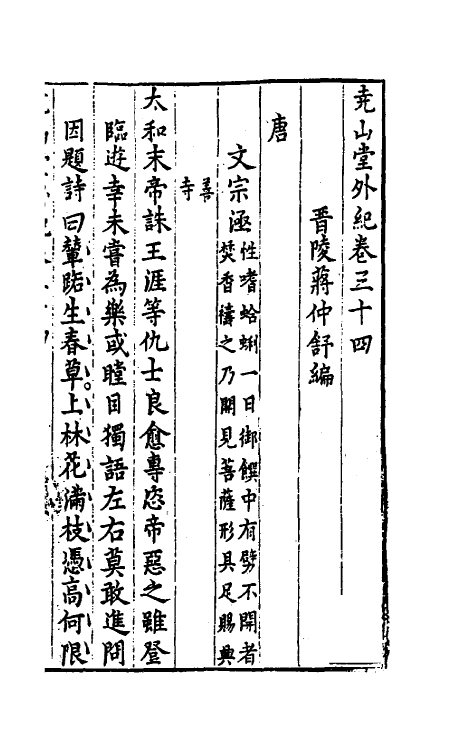 堯山堂外紀卷三十四
晋陵蔣仲舒編
唐
文宗涵
性嗜蛤蜊一日御饌中有劈不開者
焚香禱之乃開見菩薩形具足賜興
善寺
太和末帝誅王涯等仇士良愈專恣帝惡之雖登
臨遊幸未嘗為樂或瞠目獨語左右莫敢進問
因題詩曰輦路生春草。上林花滿枝憑高何限